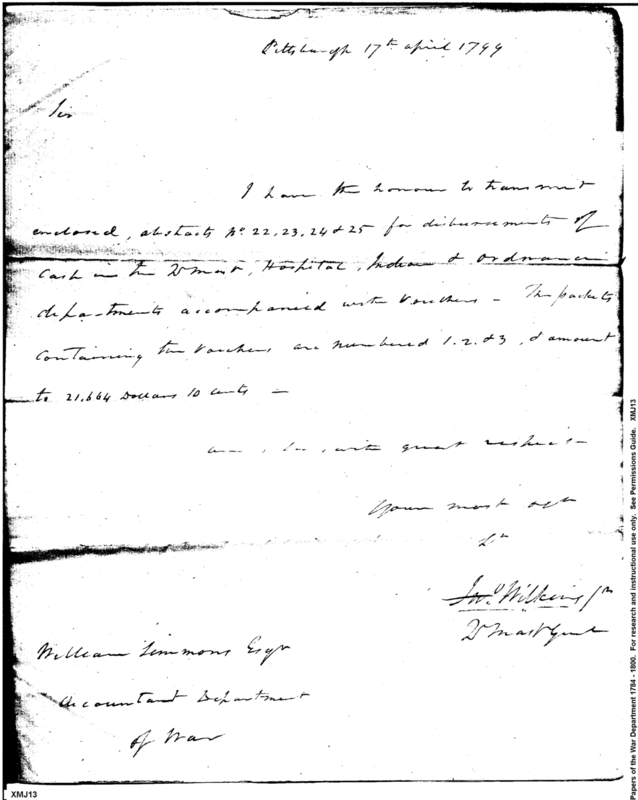 Pittsburgh 17th april 1799
Sir
I have the honour to transmit
enclosed, abstracts No. 22, 23, 24 & 25 for disbursements of
Cash in the Qr Mast, Hospital, Indian & Ordnance
departments accompanied with Vouchers – The packets
Containing the Vouchers are numbered 1. 2. & 3, & amount
to 21.664 Dollars 10 Cents –
with great respect
Your most obt
St
Jno Wilkins Jr
Qr Mast Genl
William Simmons Esqr
Accountant Department
of War
XMJ13
Papers of the War Department 1784 - 1800. For research and instructional use only. See Permissions Guide. XMJ13